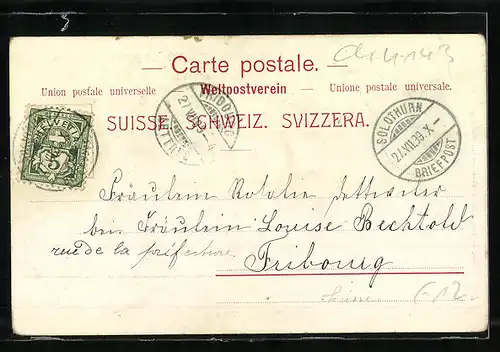 — Carte postale. —
Union postale universelle Weltpostverein — Unione postale universale.
SUISSE. SCHWEIZ. SVIZZERA.
SOLOTHURN
27.VII.99.X.–
BRIEFPOST
HELVETIA
Fräulein Rosalie Dettwiler
bei Fräulein Louise Bechtold
rue de la préfecture
Fribourg
Suisse